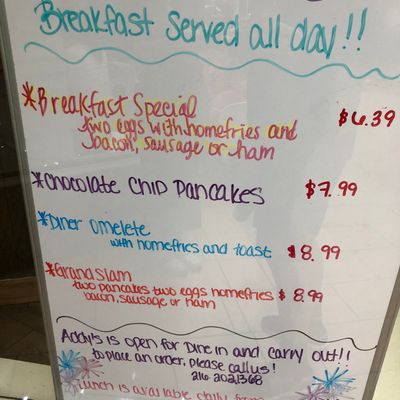 Breakfast Served all day!!
*Breakfast Special $6.39
two eggs with homefries and
bacon, sausage or ham
*Chocolate Chip Pancakes $7.99
*Diner Omelete
with homefries and toast $8.99
*Grand Slam
two pancakes two eggs homefries $8.99
bacon, sausage or ham
Addy's is open for Dine in and carry out!!
to place an order, please call us!
216 2021368
Lunch is available daily from